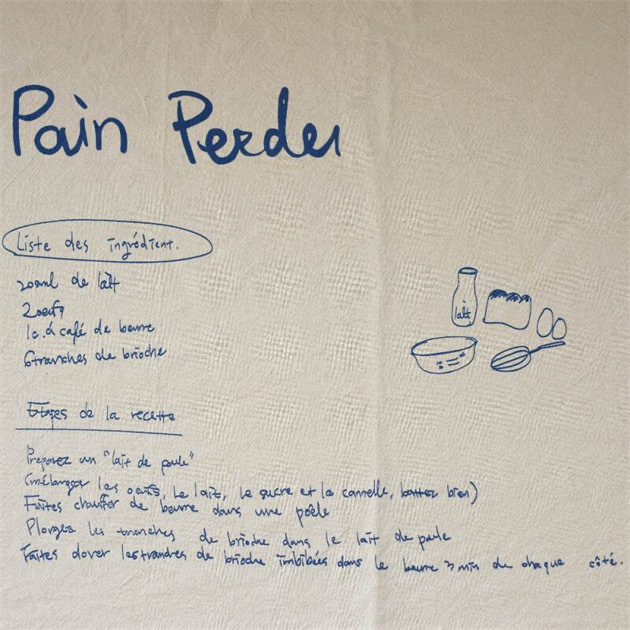 Pain Perdu
Liste des ingrédient.
200ml de lait
2 oeufs
1 c. à café de beurre
6 tranches de brioche
lait
Etapes de la recette
Préparez un "lait de poule"
(mélangez les oeufs, le lait, le sucre et la cannelle, battez bien)
Faites chauffer de beurre dans une poêle
Plongez les tranches de brioche dans le lait de poule
Faites dorer les tranches de brioche imbibées dans le beurre 3 min de chaque côté.